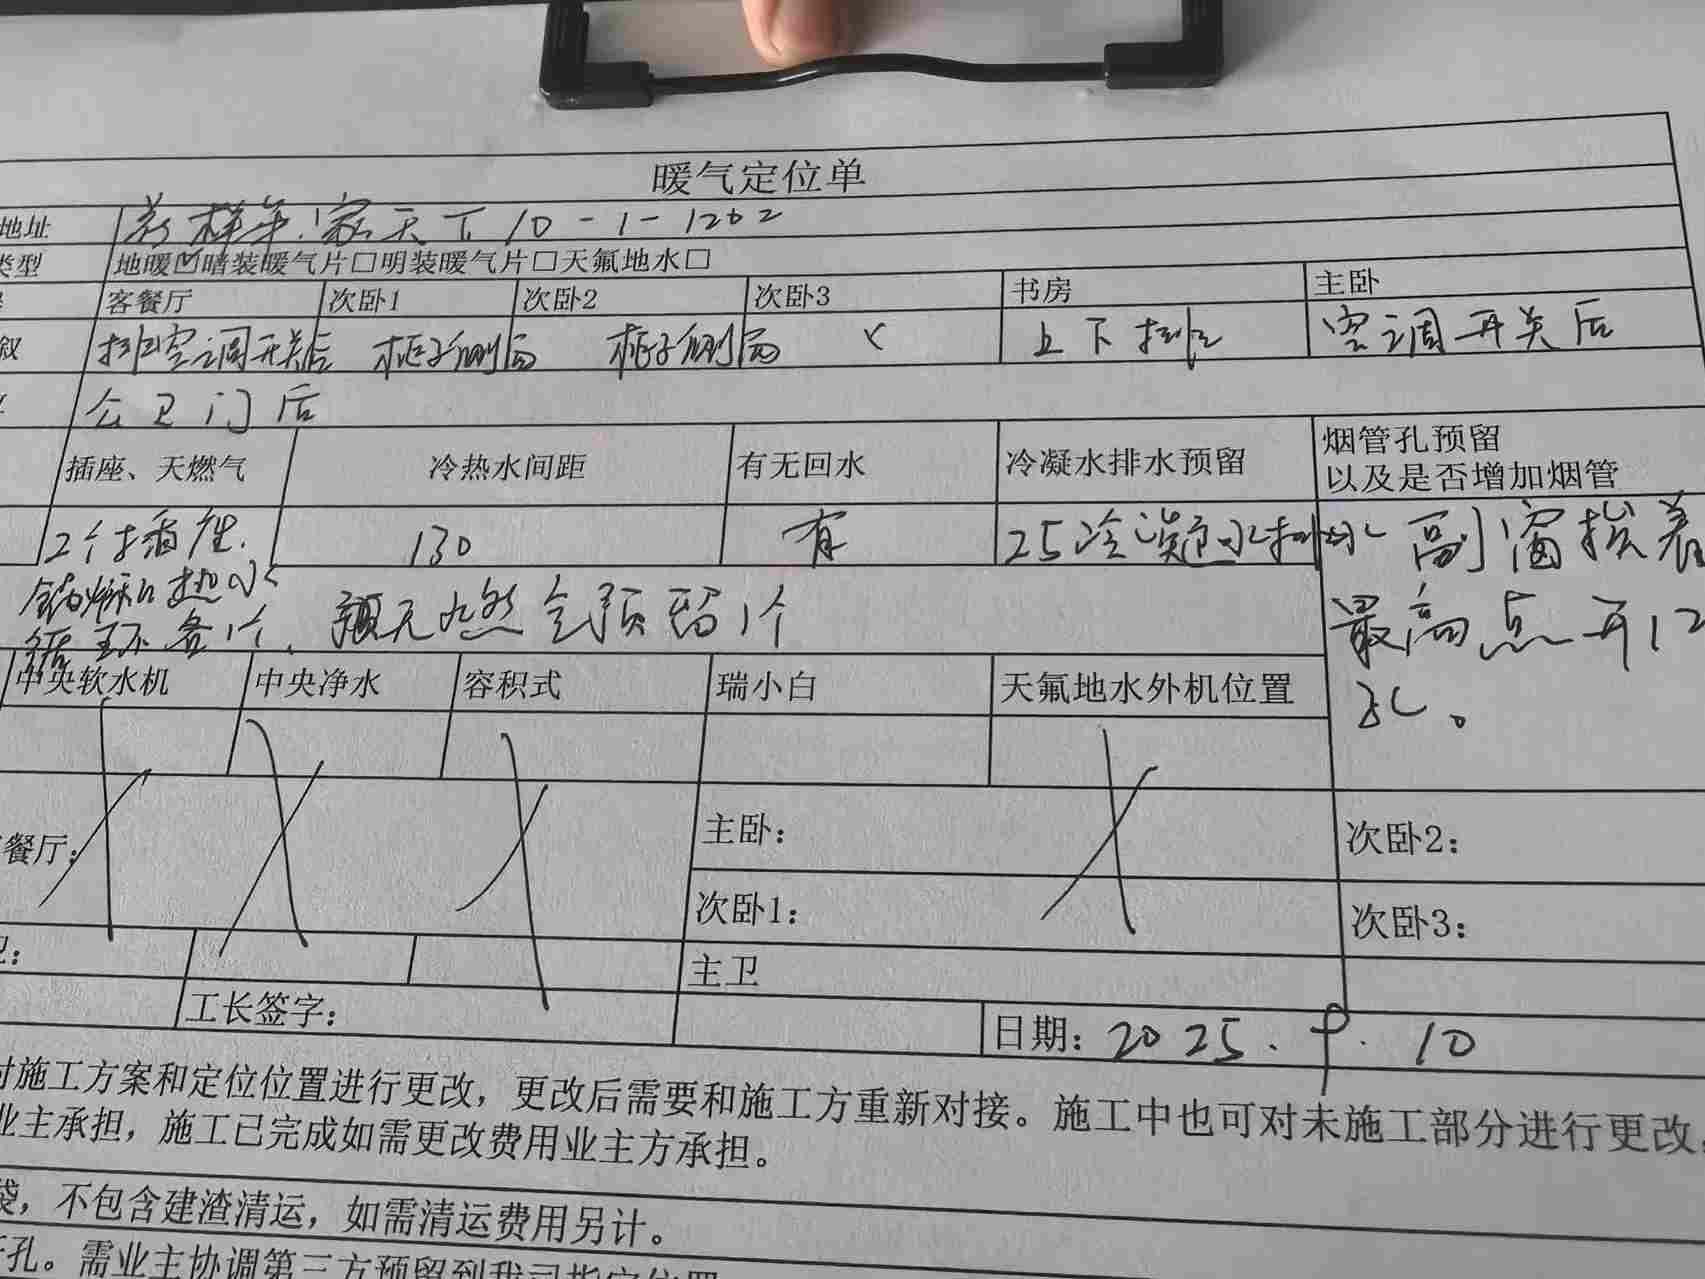 暖气定位单
地址 花样年.家天下10-1-1202
类型 地暖☑暗装暖气片□明装暖气片□天氟地水□
客餐厅 次卧1 次卧2 次卧3 书房 主卧
叙 空调开关后 柜子侧面 柜子侧面 × 上下排 空调开关后
公卫门后
插座、天燃气 冷热水间距 有无回水 冷凝水排水预留 烟管孔预留
以及是否增加烟管
2个插座. 130 有 25冷凝水排水 副窗挨着
锅炉和热水
循环各1个. 天然气预留1个 最高点开12
孔。
中央软水机 中央净水 容积式 瑞小白 天氟地水外机位置
餐厅: 主卧: 次卧2:
次卧1: 次卧3:
主卫
工长签字: 日期: 2025.9.10
对施工方案和定位位置进行更改，更改后需要和施工方重新对接。施工中也可对未施工部分进行更改,
业主承担，施工已完成如需更改费用业主方承担。
袋，不包含建渣清运，如需清运费用另计。
孔。需业主协调第三方预留到我司指定位置